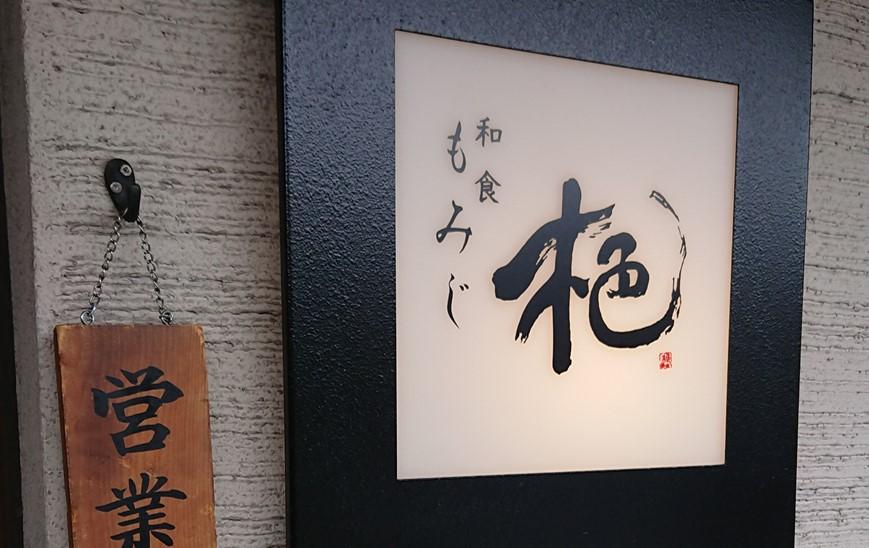 和食
もみじ
栬
営業